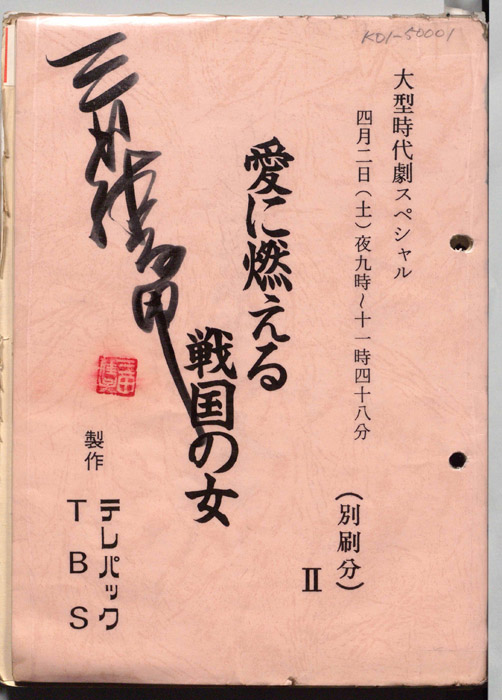 KD1-50001
大型時代劇スペシャル
四月二日(土)夜九時~十一時四十八分
(別刷分)
II
愛に燃える
戦国の女
製作
テレパック
TBS